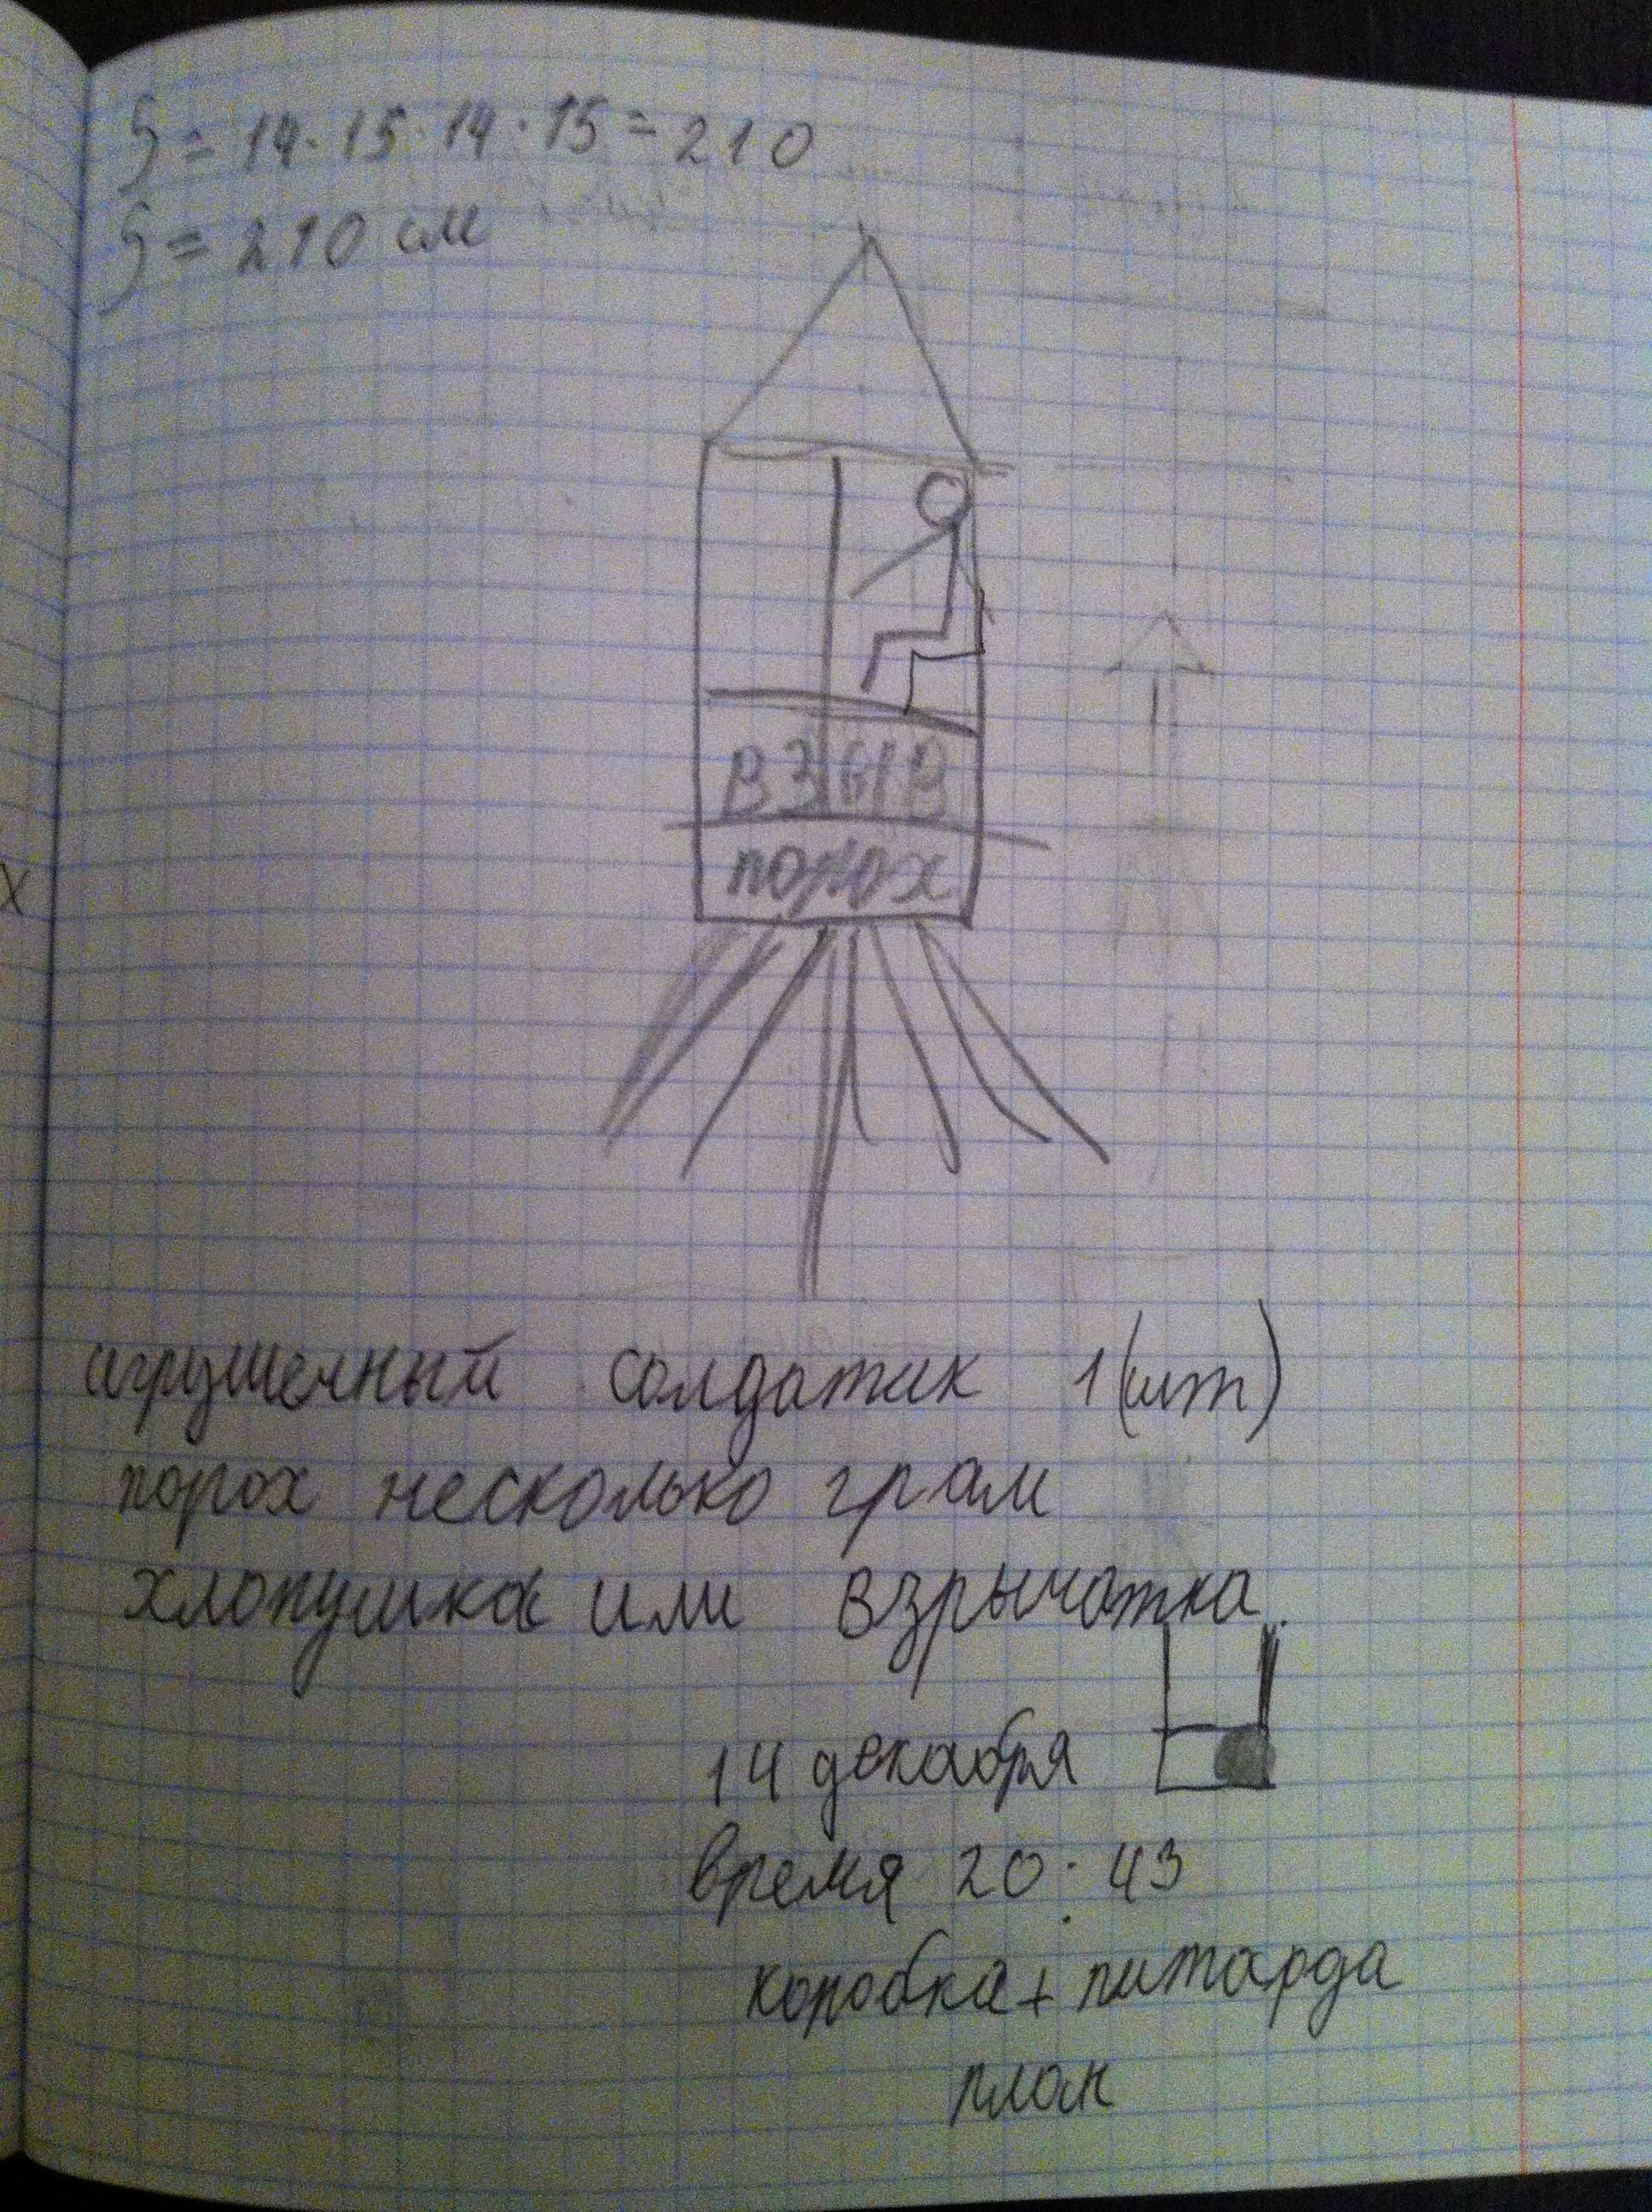 S = 14 · 15 · 14 · 15 = 210
S = 210 см
ВЗЫВ
порох
игрушечный солдатик 1(шт)
порох несколько грам
хлопушка или взрычатка
14 декабря
время 20:43
коробка + питарда
план
х